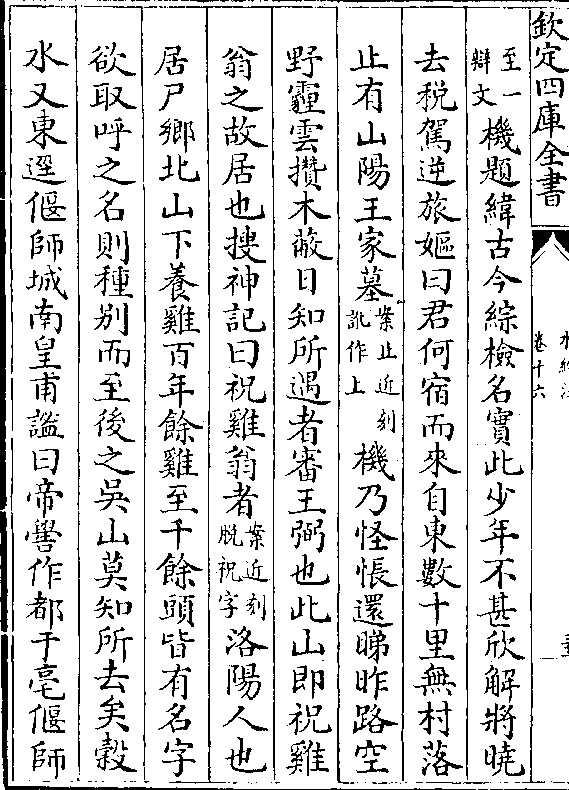 欽定四庫全書
卷十六
至一
辯文機題緯古今綜檢名實此少年不甚欣解將曉
去税駕逆旅嫗曰君何宿而來自東數十里無村落
止有山陽王家墓案止近刻訛作上機乃怪悵還睇昨路空
野霾雲攢木蔽日知所遇者審王弼也此山即祝雞
翁之故居也搜神記曰祝雞翁者案近刻脱祝字洛陽人也
居尸鄉北山下養雞百年餘雞至千餘頭皆有名字
欲取呼之名則種别而至後之吳山莫知所去矣榖
水又東逕偃師城南皇甫謐曰帝嚳作都于亳偃師